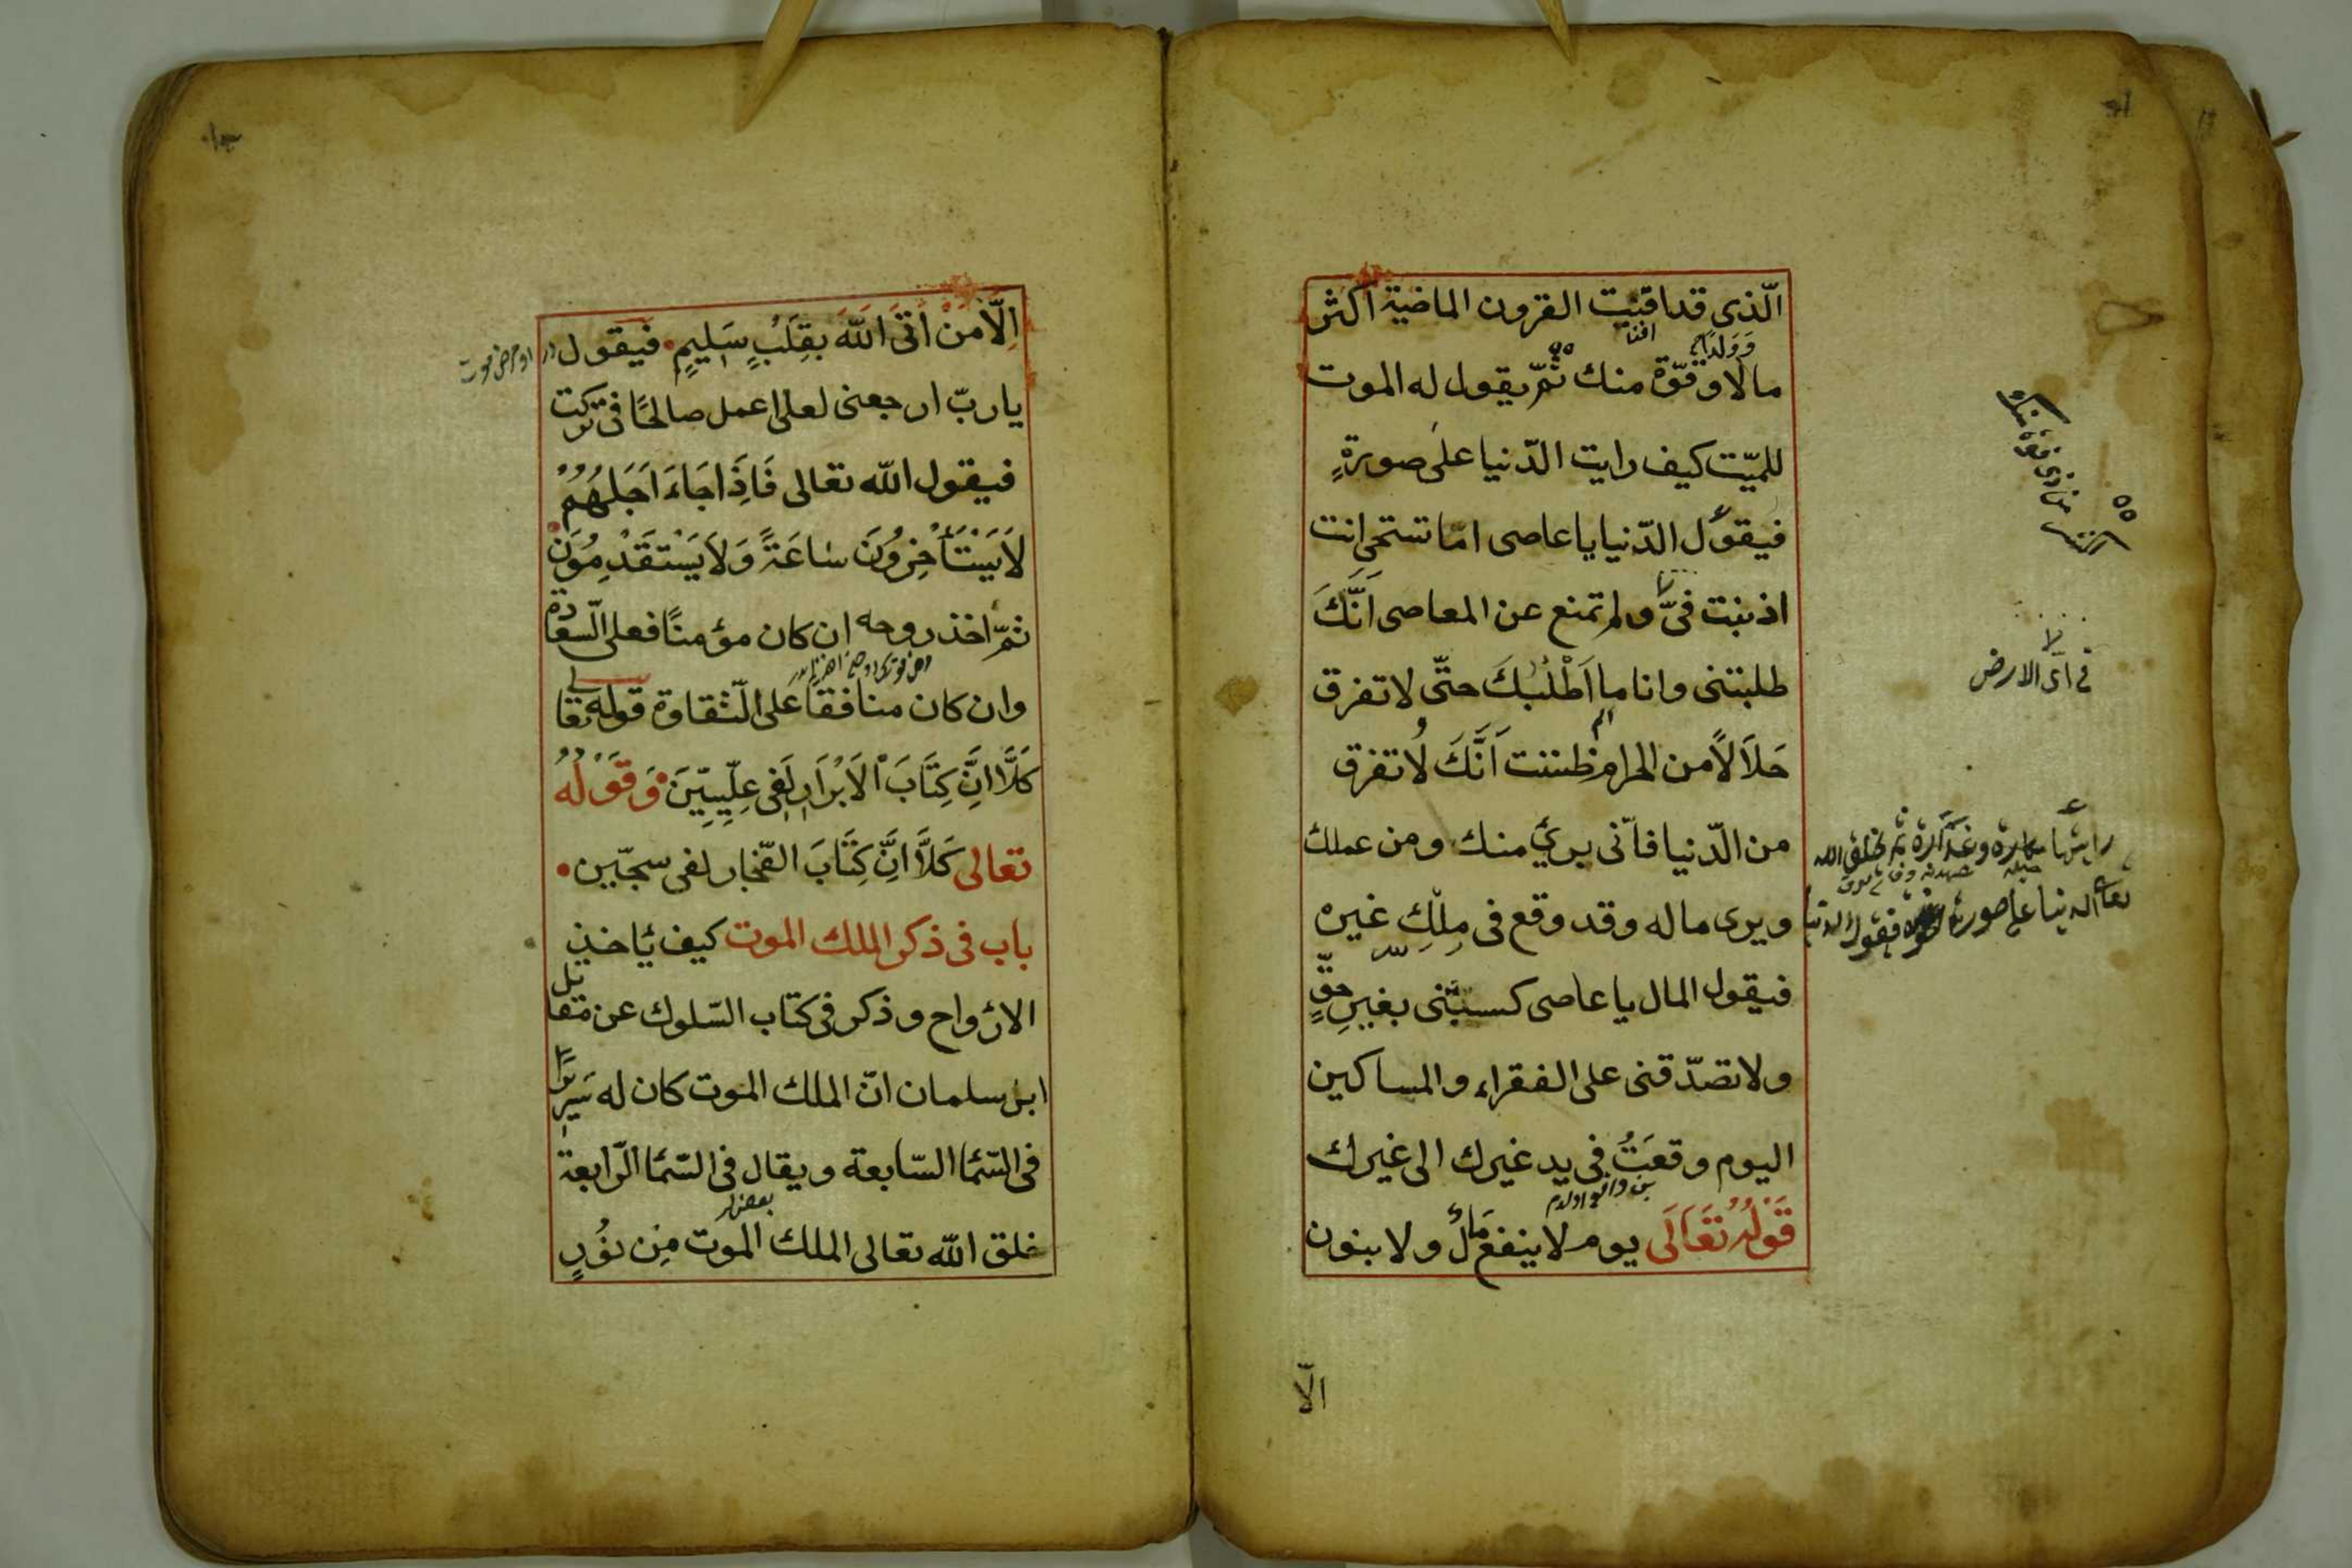 الّذى قد افنيت القرون الماضية اكثر
مالا وقوّة منك ثمّ يقول له الموت
للميّت كيف رايت الدّنيا على صورةٍ
فيقول الدّنيا يا عاصى امّا تستحى انت
اذنبت فىّ ولم تمنع عن المعاصى اَنَّكَ
طلبتنى وانا ما اَطْلُبُكَ حتّى لا تفرق
حَلَالًا من الحرام ظننت اَنَّكَ لا تفرق
من الدّنيا فانّى برئ منك ومن عملك
ويرى ماله وقد وقع فى مِلْكِ غيره
فيقول المال يا عاصى كسبتنى بغيرِ حقٍّ
ولا تصدّقنى على الفقراء والمساكين
اليوم وقعَتُ فى يد غيرك الى غيرك
قَوْلُهُ تَعَالَى يوم لا ينفع مَالٌ ولا بنون
وَوَلَدًا
افنا
فى اىّ الارض
الّا
اِلَّا مَنْ اَتَى اللّٰهَ بِقَلْبٍ سَلِيمٍ فيقول
يا ربّ ارجعنى لعلى اعمل صالحًا فى تركت
فيقول اللّه تعالى فَاِذَا جَاءَ اَجَلُهُمْ
لَا يَسْتَأْخِرُونَ سَاعَةً وَلَا يَسْتَقْدِمُونَ
ثمّ اخذ روحه ان كان مؤمنًا فعلى السّعادة
وان كان منافقا عَلى الشّقاوة قوله تعالى
كَلَّا اِنَّ كِتَابَ الْاَبْرَارِ لَفِى عِلِّيِّينَ وَقَوْلُهُ
تعالى كَلَّا اِنَّ كِتَابَ الفجّار لفى سجّين
باب فى ذكر الملك الموت كيف يأخذ
الارواح وذكر فى كتاب السّلوك عن مقاتل
ابن سلمان انّ الملك الموت كان له سَرِيرًا
فى السّمَا السّابعة ويقال فى السّمَا الرّابعة
خلق اللّه تعالى الملك الموت مِن نُورٍ